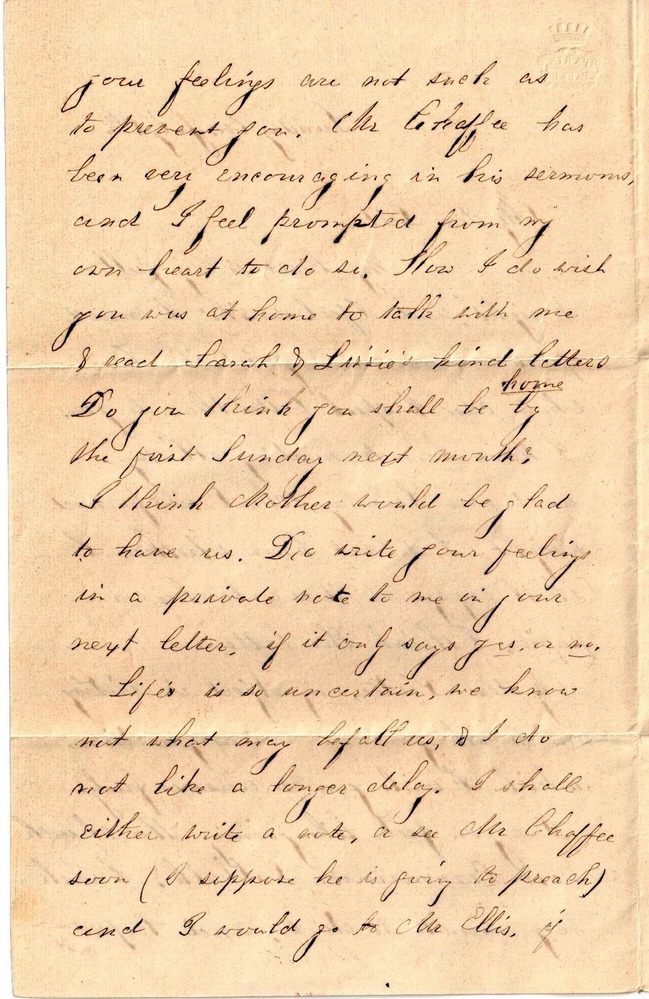 your feelings are not such as
to prevent you. Mr Chaffee has
been very encouraging in his sermons,
and I feel prompted from my
own heart to do so. How I do wish
you was at home to talk with me
& read Sarah & Lizzie's kind letters
home
Do you think you shall be by
the first Sunday next month?
I think Mother would be glad
to have us. Do write your feelings
in a private note to me in your
next letter, if it only says yes, or no.
Life's is so uncertain, we know
not what may befall us, & I do
not like a longer delay. I shall
either write a note, or see Mr Chaffee
soon (I suppose he is going to preach)
and I would go to Mr Ellis. if